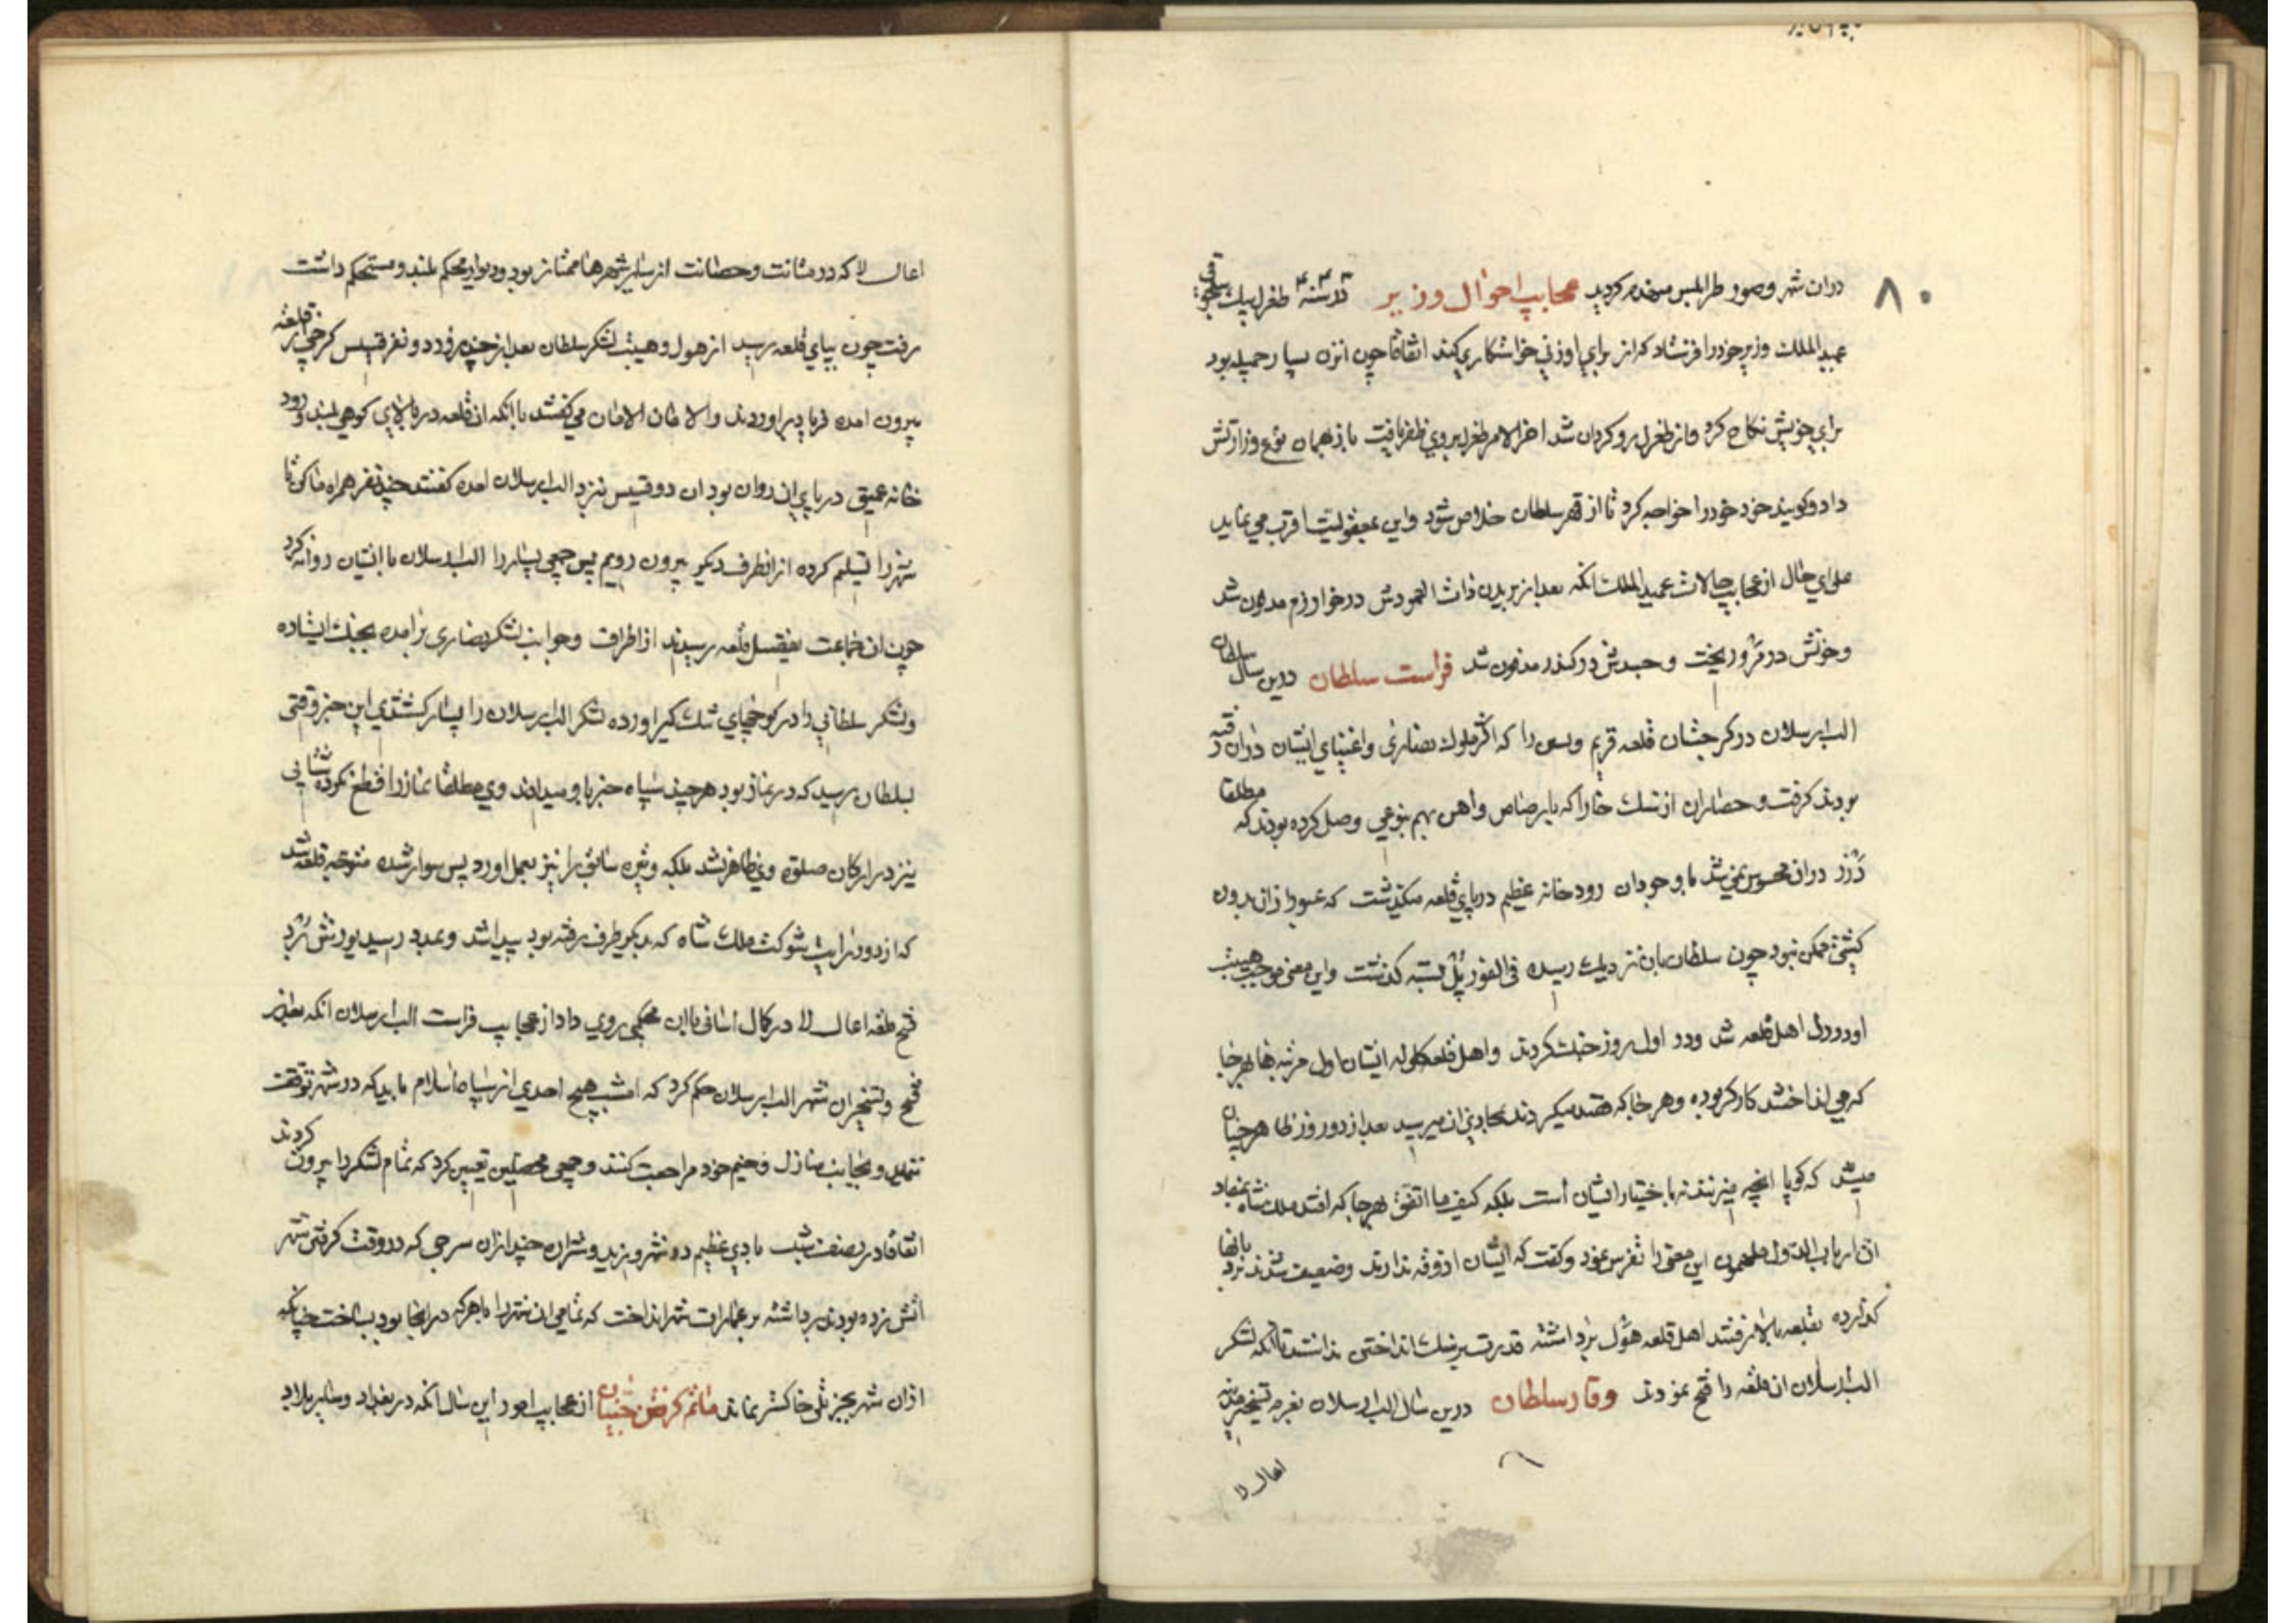 ۸۰
دران شهر وصور طرابلس منهدم کردید عجایب احوال وزیر در سنه ۴۴۳ طغرل بیک سلجوقی
عمید الملک وزیر خود را فرستاد که از برای او زنی خواستکاری کند اتفاقا چون آن زن بسیار جمیله بود
برای خویش نکاح کرد و از طغرل رو کردان شد اخر الامر طغرل بروی ظفر یافت باز همان نوع وزارتش
داد و کویند خود خود را خواجه کرد تا از قهر سلطان خلاص شود و این بمعقولیت اقرب می نماید
علی ای حال از عجایب حالات عمید الملک انکه بعد از بریدن ذات العمودش در خوارزم مدفون شد
وخونش در مرو ریخت و جسدش در کندر مدفون شد فراست سلطان درین سال سلطان
الب ارسلان در کرجستان قلعه قریم ونسین را که اکثر ملوک نصاری واغنیای ایشان دران قلعه
بودند کرفت و حصار ان از سنک خارا که با رصاص واهن بهم بنوعی وصل کرده بودند که مطلقا
درز دران محسوس نمی شد با وجود ان رودخانه عظیم در پای قلعه میکذشت که عبور از ان بدون
کشتی ممکن نبود چون سلطان بان نزدیک رسیده فی الفور پل بسته کذشت و این معنی موجب هیبت
او در دل اهل قلعه شد ودر اول روز جنک کردند واهل قلعه کلوله ایشان اول مرتبه ها هر جا
که می انداختند کارکر بوده وهر جا که قصد میکردند بمحاذی ان میرسید بعد از دو روز ظاهر چنان
میشد که کویا انچه میزنند نه باختیار ایشان است بلکه کیف ما اتفق هر جا که افتد ملک شاه بمفاد
ان ارباب الدول ملهمون این معنی را تفرس نمود وکفت که ایشان اذوقه ندارند وضعیف شدند نردبانها
کذارده بقلعه بالا رفتند اهل قلعه هول برداشته قدرت بر سنک انداختن نداشتند تا انکه لشکر
الب ارسلان ان قلعه را فتح نمودند وقار سلطان درین سال الب ارسلان بعزم تسخیر مدینه
اعال لا
اعال لا که در متانت وحصانت از سایر شهرها ممتاز بود ودیوار محکم بلند و مستحکم داشت
رفت چون بپای قلعه رسید از هول وهیبت لشکر سلطان بعد از چند روز دو نفر قسیس کرجی از قلعه
بیرون امده فریاد براوردند والامان الامان می کفتند با انکه ان قلعه در بالای کوهی بلند و رود
خانه عمیق در پای ان روان بود ان دو قسیس نزد الب ارسلان امده کفتند چند نفر همراه ما کن تا
شهر را تسلیم کرده از انطرف دیکر بیرون رویم پس جمعی بسیار را الب ارسلان با ایشان روانه کرد
چون ان جماعت بفصیل قلعه رسیدند از اطراف وجوانب لشکر نصاری برامده بجنک ایستاده
ولشکر سلطانی را در کوچهای تنک کیر اورده لشکر الب ارسلان را بسیار کشتند این خبر وقتی
بسلطان رسید که در نماز بود هر چند سپاه خبر باو میدادند وی مطلقا نماز را قطع نکرده شتابی
نیز در ارکان صلوة وی ظاهر نشد بلکه وتیره سابق را نیز بعمل اورد پس سوار شده متوجه قلعه شد
که از دور رایت شوکت ملک شاه که بدیکر طرف رفته بود پیدا شد و بمدد رسید یورش برد
فتح قلعه اعال لا در کمال اسانی با ان محکمی روی داد از عجایب فراست الب ارسلان انکه بعد از
فتح وتسخیر ان شهر الب ارسلان حکم کرد که امشب هیچ احدی از سپاه اسلام نباید که در شهر توقف
نماید و بجانب منازل وخیم خود مراجعت کنند و جمعی محصلین تعیین کرد که تمام لشکر را بیرون کردند
اتفاقا در نصف شب بادی عظیم در شهر وزید و شراره چند ازان سرجی که در وقت کرفتن شهر
اتش زده بودند برداشته بر عمارات شهر انداخت که تمامی ان شهر را با هر که در انجا بود بسوخت چنانکه
ازان شهر بجز تلی خاکستر نماند ماتم کرفتن جنیان از عجایب امور این سال انکه در بغداد وسایر بلاد